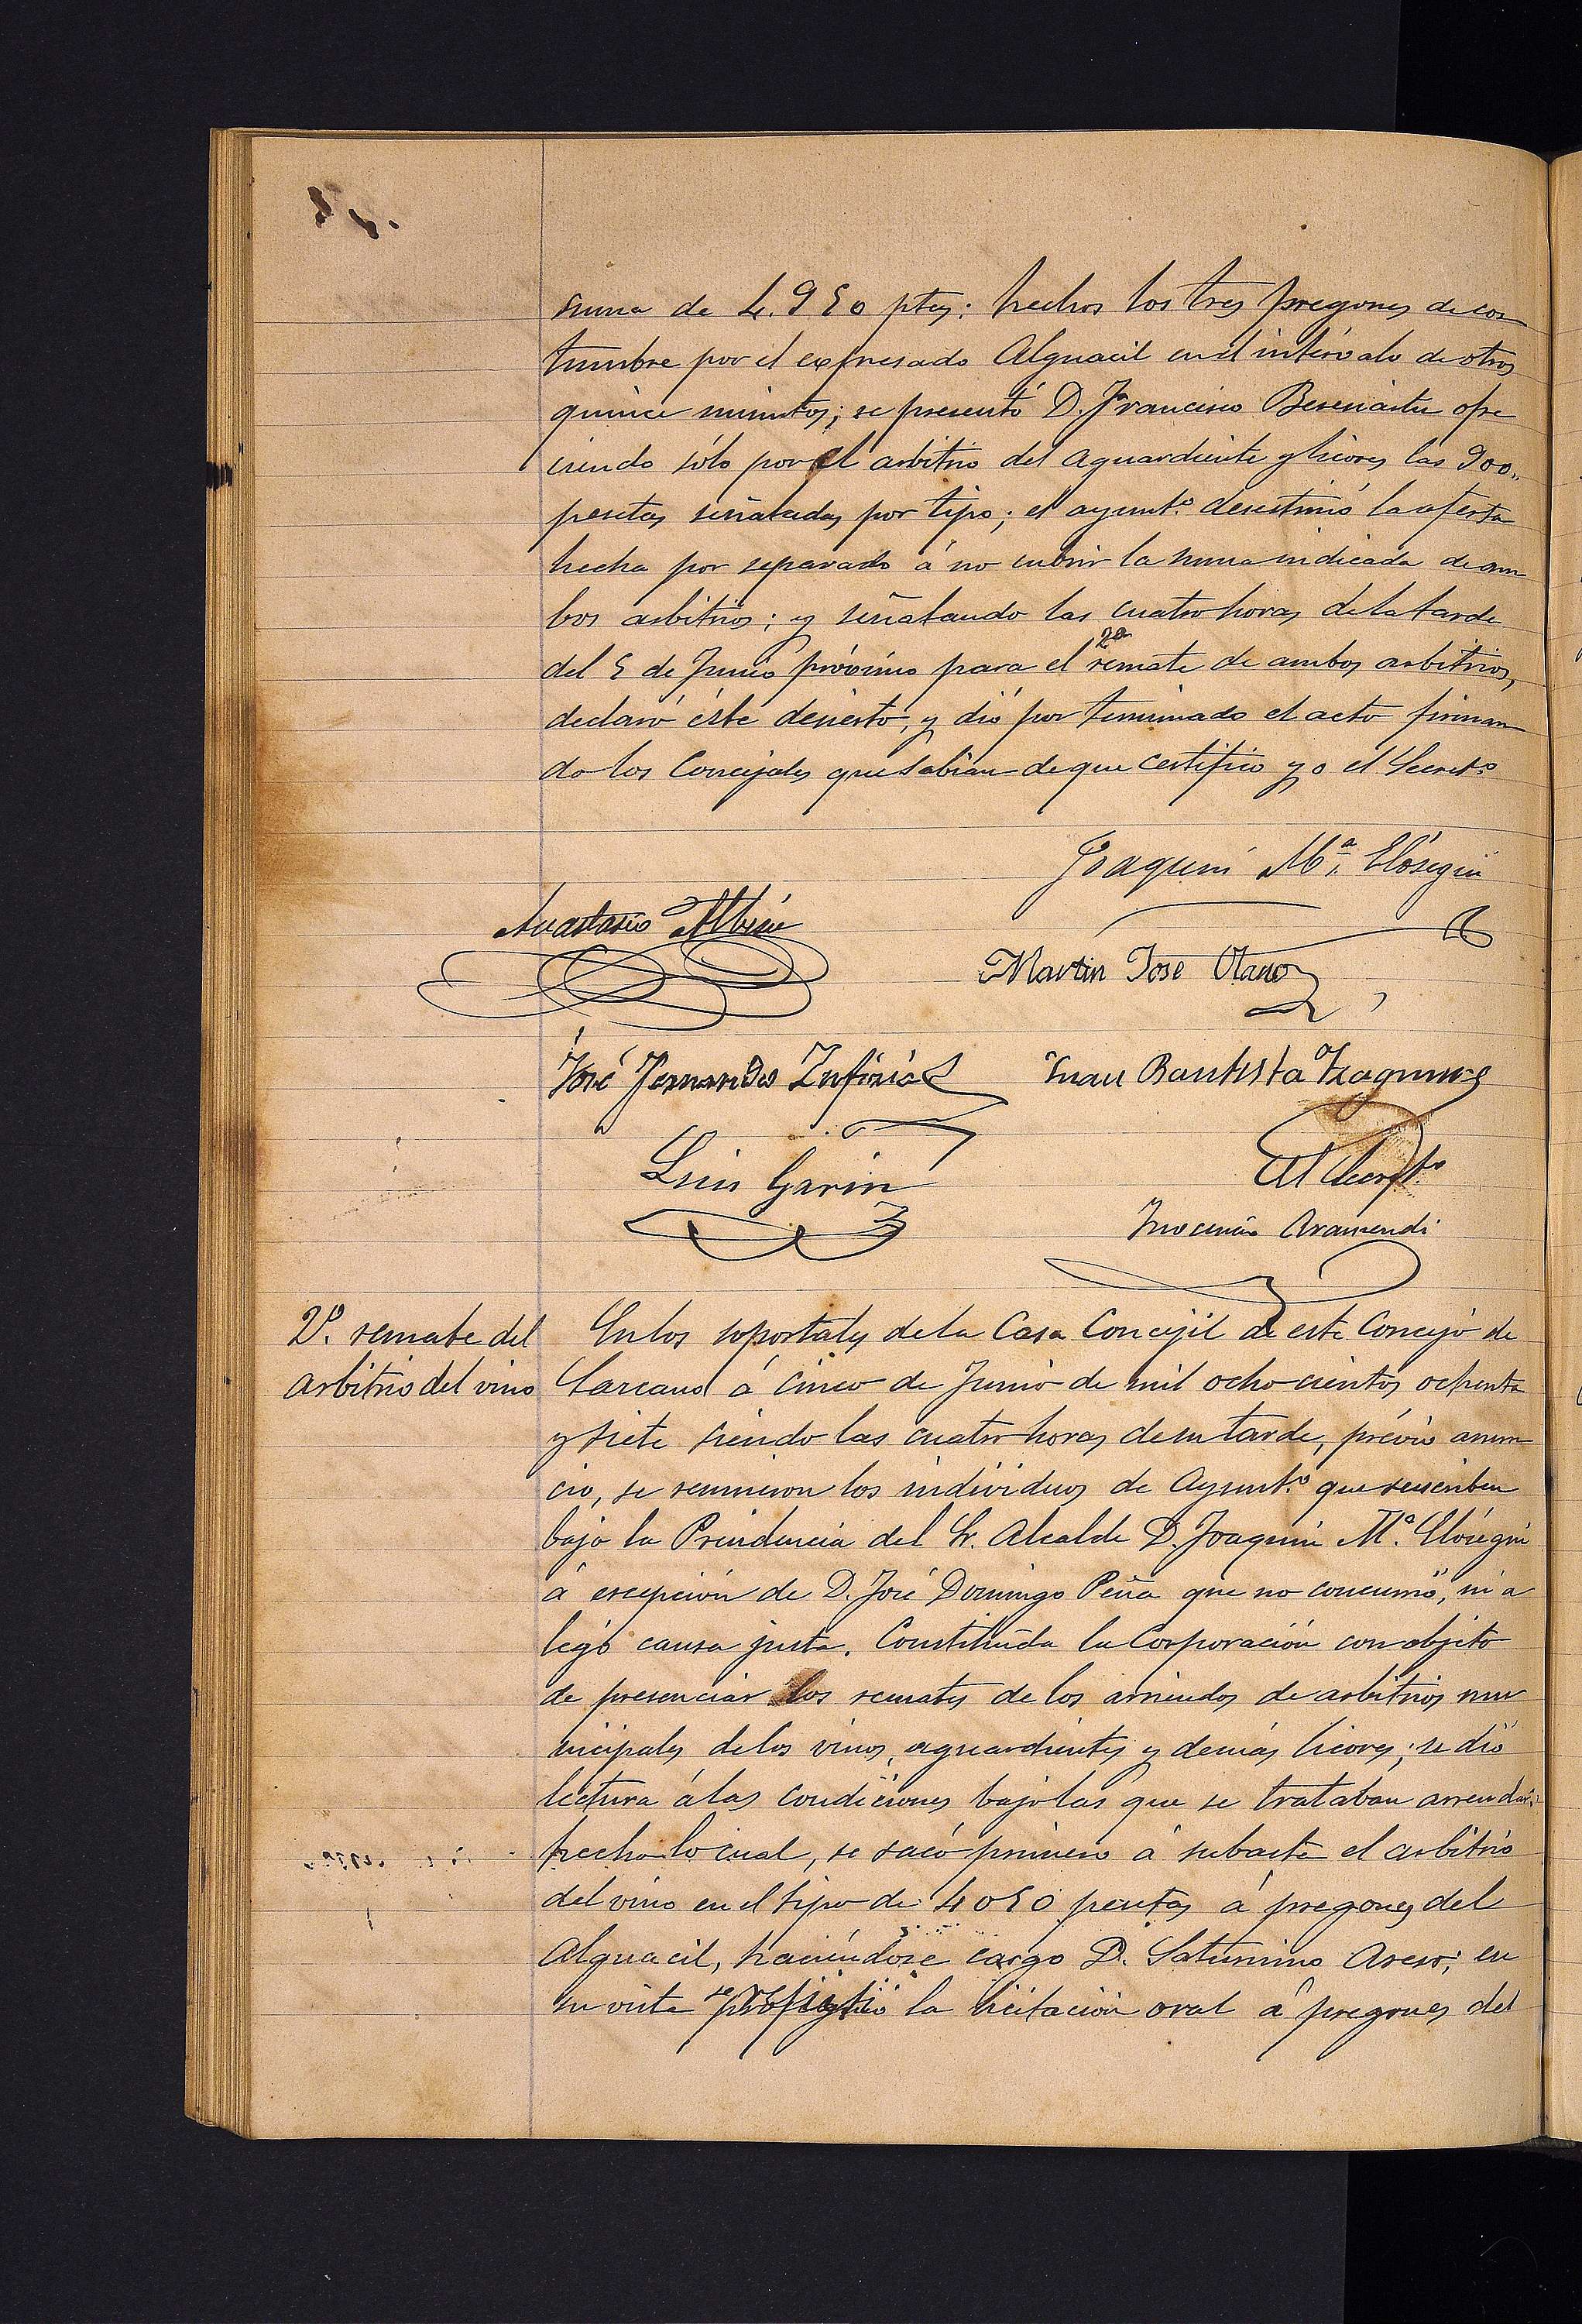 suma de 4.950 ptas: hechos los tres pregones de cos
tumbre por el expresado Alguacil en el intérvalo de otros
quince minutos; se presentó D. Francisco Beresiartu ofre
ciendo sólo por el arbitrio del aguardiente y licores las 900,,
pesetas señaladas por tipo; el ayuntº. desestimó la oferta
hecha por separado á no cubrir la suma indicada de am
bos arbitrios; y señalando las cuatro horas de la tarde
del 5 de Junio próximo para el 2º remate de ambos arbitrios,
declaró éste desierto, y dió por terminado el acto firman
do los Concejales que sabian de que certifico yo el Secretº
Joaquin Mª. Elósegui
Anastasio Albisu
Martin José Olano
José Fernando Zufiria
Juan Bautista Izaguirre
Luis Garin
El Secretº
Inocencio Aramendi
2º. remate del
arbitrio del vino
En los soportales de la Casa Concejil de este Concejo de
Larcano á cinco de Junio de mil ocho cientos ochenta
y siete siendo las cuatro horas de su tarde, prévio anun
cio, se reunieron los individuos de Ayuntº. que suscriben
bajo la Presidencia del Sr. Alcalde D. Joaquin Mª. Elósegui
á escepción de D. José Domingo Peña que no concurrió, ni a
legó causa justa. Constituida la Corporación con objeto
de presenciar los remates de los arriendos de arbitrios mu
nicipales de los vinos, aguardientes y demás licores; se dió
lectura á las condiciones bajo las que se trataban arrendar:
hecho lo cual, se sacó primero á subasta el arbitrio
del vino en el tipo de 4050 pesetas á pregones del
Alguacil, haciéndose cargo D. Saturnino Areso; en
su vista se prosiguió la licitación oral á pregones del